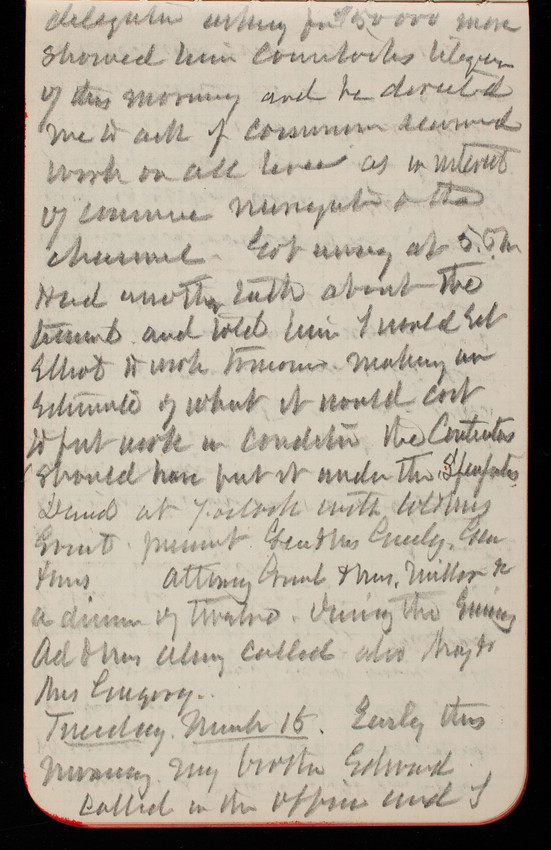 delegation asking for $50 000 more
showed him telegram
of this morning and he directed
me to ask if
work on all lines as in interest
of commerce navigation & the
channel. Got away at 5.
Had another talk about the
and told him I would get
Elliot to work tomorrow making an
estimate of what it would cost
to put work in condition the Contractors
should have put it under the Specifcatns
Dined at 7 oclock with
Grant present Gen & Mrs Greely, Gen
& Mrs Attorney Genl & Mrs. Miller &c
a dinner of twelve. During the Evening
Ad & Mrs called also Maj &
Mrs Gregory.
Tuesday. March 15. Early this
morning my brother Edward
called in the office and I